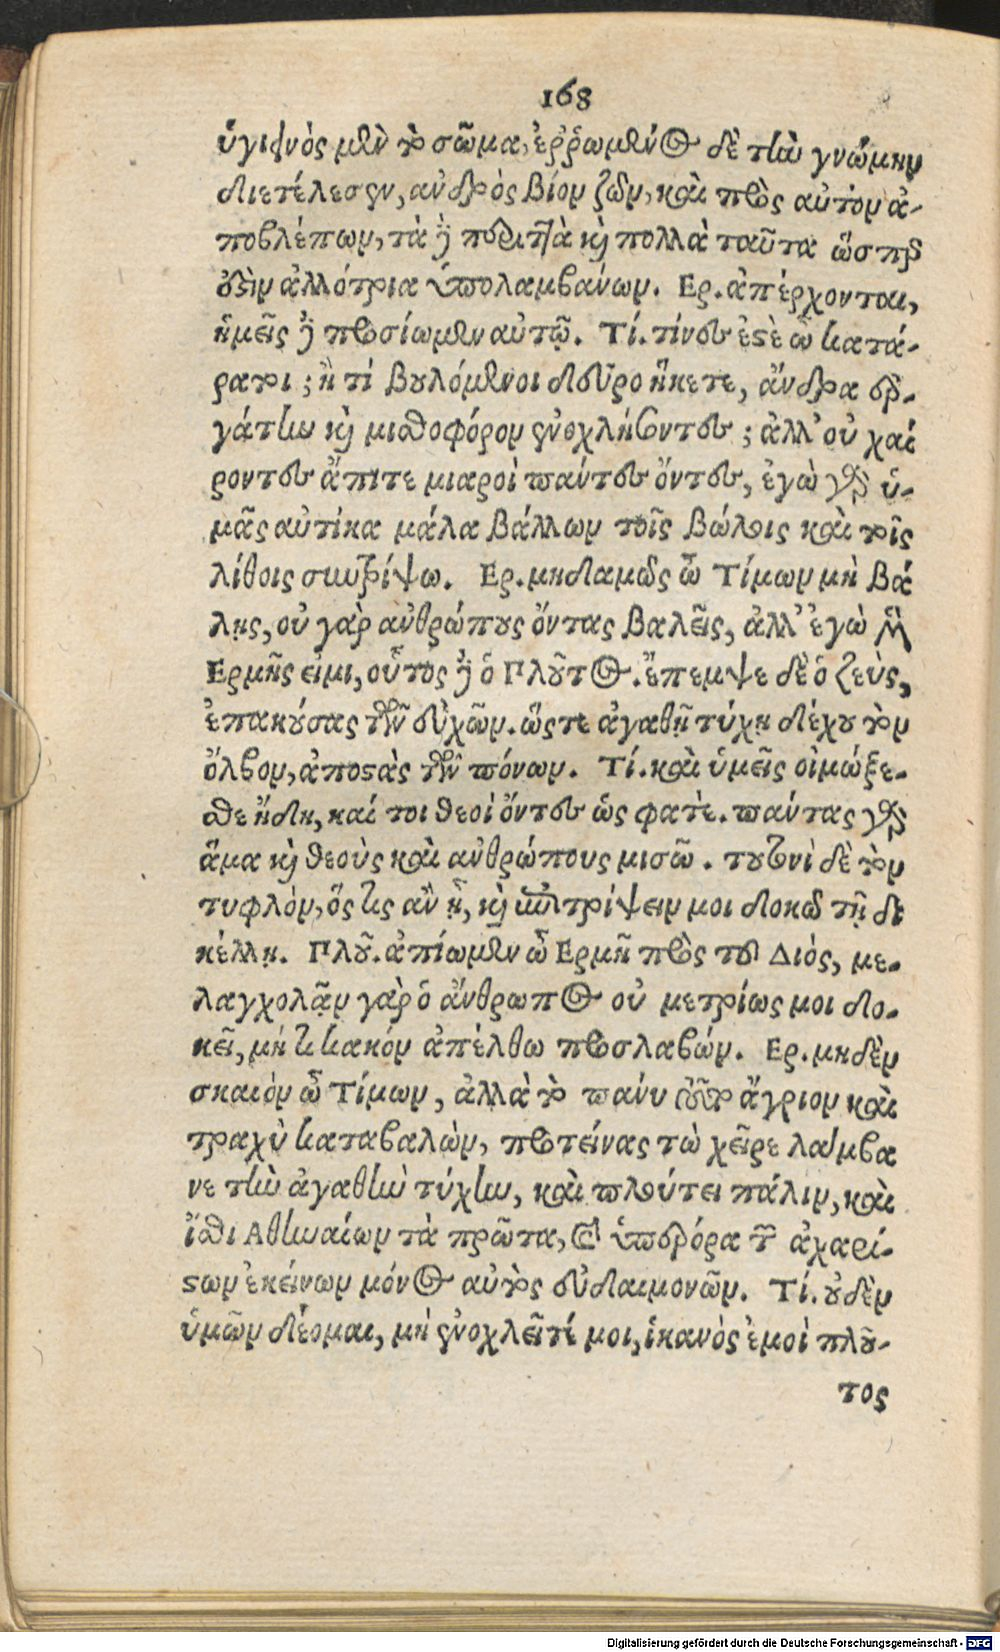 168
ὑγιεινὸς μὲν τὸ σῶμα, ἐῤῥωμένος δὲ τὴν γνώμην
διετέλεσεν, ἀνδρὸς βίον ζῶν, καὶ πρὸς αὑτὸν ἀ-
ποβλέπων, τὰ δὲ περιττὰ καὶ πολλὰ ταῦτα ὥσπερ
ἐστὶν ἀλλότρια ὑπολαμβάνων. Ερ. ἀπέρχονται,
ἡμεῖς δὲ προσίωμεν αὐτῷ. Τί. τίνες ἐστὲ ὦ κατά-
ρατοι; ἢ τί βουλόμενοι δεῦρο ἥκετε, ἄνδρα ἐρ-
γάτην καὶ μισθοφόρον ἐνοχλήσοντες; ἀλλ' οὐ χαί
ροντες ἄπιτε μιαροὶ πάντες ὄντες, ἐγὼ γὰρ ὑ-
μᾶς αὐτίκα μάλα βάλλων τοῖς βώλοις καὶ τοῖς
λίθοις συντρίψω. Ερ. μηδαμῶς ὦ Τίμων μὴ βά
λῃς, οὐ γὰρ ἀνθρώπους ὄντας βαλεῖς, ἀλλ' ἐγὼ μὲν
Ερμῆς εἰμι, οὗτος δὲ ὁ Πλοῦτος. ἔπεμψε δὲ ὁ ζεὺς,
ἐπακούσας τῶν εὐχῶν. ὥστε ἀγαθῇ τύχῃ δέχου τὸν
ὄλβον, ἀποστὰς τῶν πόνων. Τί. καὶ ὑμεῖς οἰμώξε-
σθε ἤδη, καί τοι θεοὶ ὄντες ὡς φατὲ. πάντας γὰρ
ἅμα καὶ θεοὺς καὶ ἀνθρώπους μισῶ. τουτονὶ δὲ τὸν
τυφλὸν, ὅς τις ἂν ᾖ, καὶ ἐπιτρίψειν μοι δοκῶ τῇ δι
κέλλῃ. Πλοῦ. ἀπίωμεν ὦ Ερμῆ πρὸς τοῦ Διὸς, με-
λαγχολᾷν γὰρ ὁ ἄνθρωπος οὐ μετρίως μοι δο-
κεῖ, μή τι κακὸν ἀπέλθω προσλαβών. Ερ. μηδὲν
σκαιὸν ὦ Τίμων, ἀλλὰ τὸ πάνυ τοῦτο ἄγριον καὶ
τραχὺ καταβαλὼν, προτείνας τὼ χεῖρε λάμβα
νε τὴν ἀγαθὴν τύχην, καὶ πλούτει πάλιν, καὶ
ἴσθι Αθηναίων τὰ πρῶτα, καὶ ὑπερόρα τῶν ἀχαρί-
στων ἐκείνων μόνος αὐτὸς εὐδαιμονῶν. Τί. οὐδὲν
ὑμῶν δέομαι, μὴ ἐνοχλεῖτέ μοι, ἱκανὸς ἐμοὶ πλοῦ-
τος
Digitalisierung gefördert durch die Deutsche Forschungsgemeinschaft - DFG